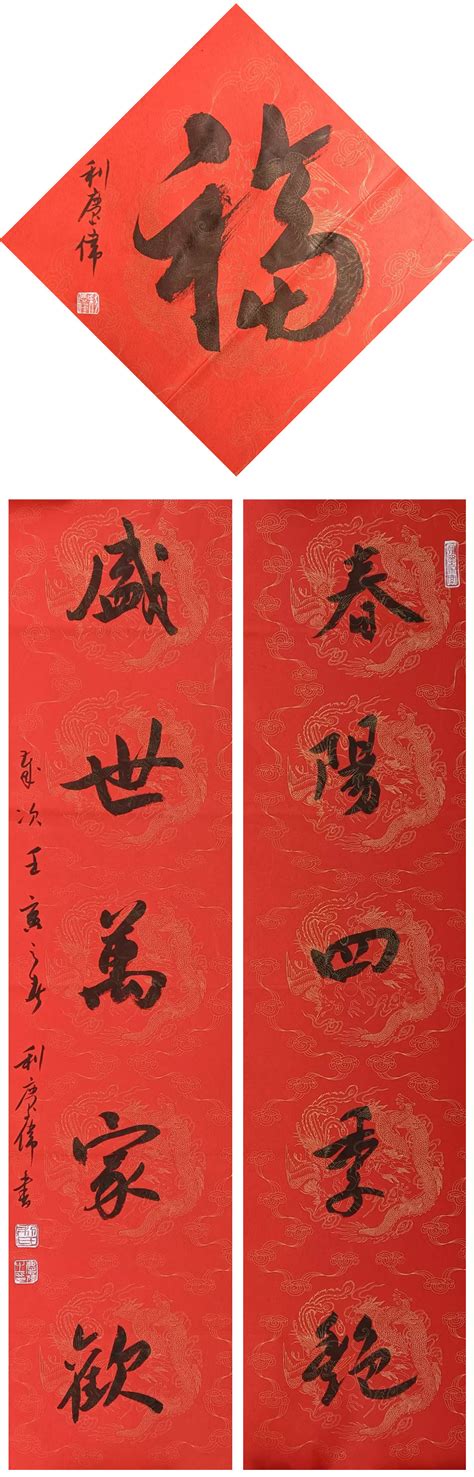 福
利偉
春陽四季艳
盛世萬家歡
歲次壬寅之春 利偉書